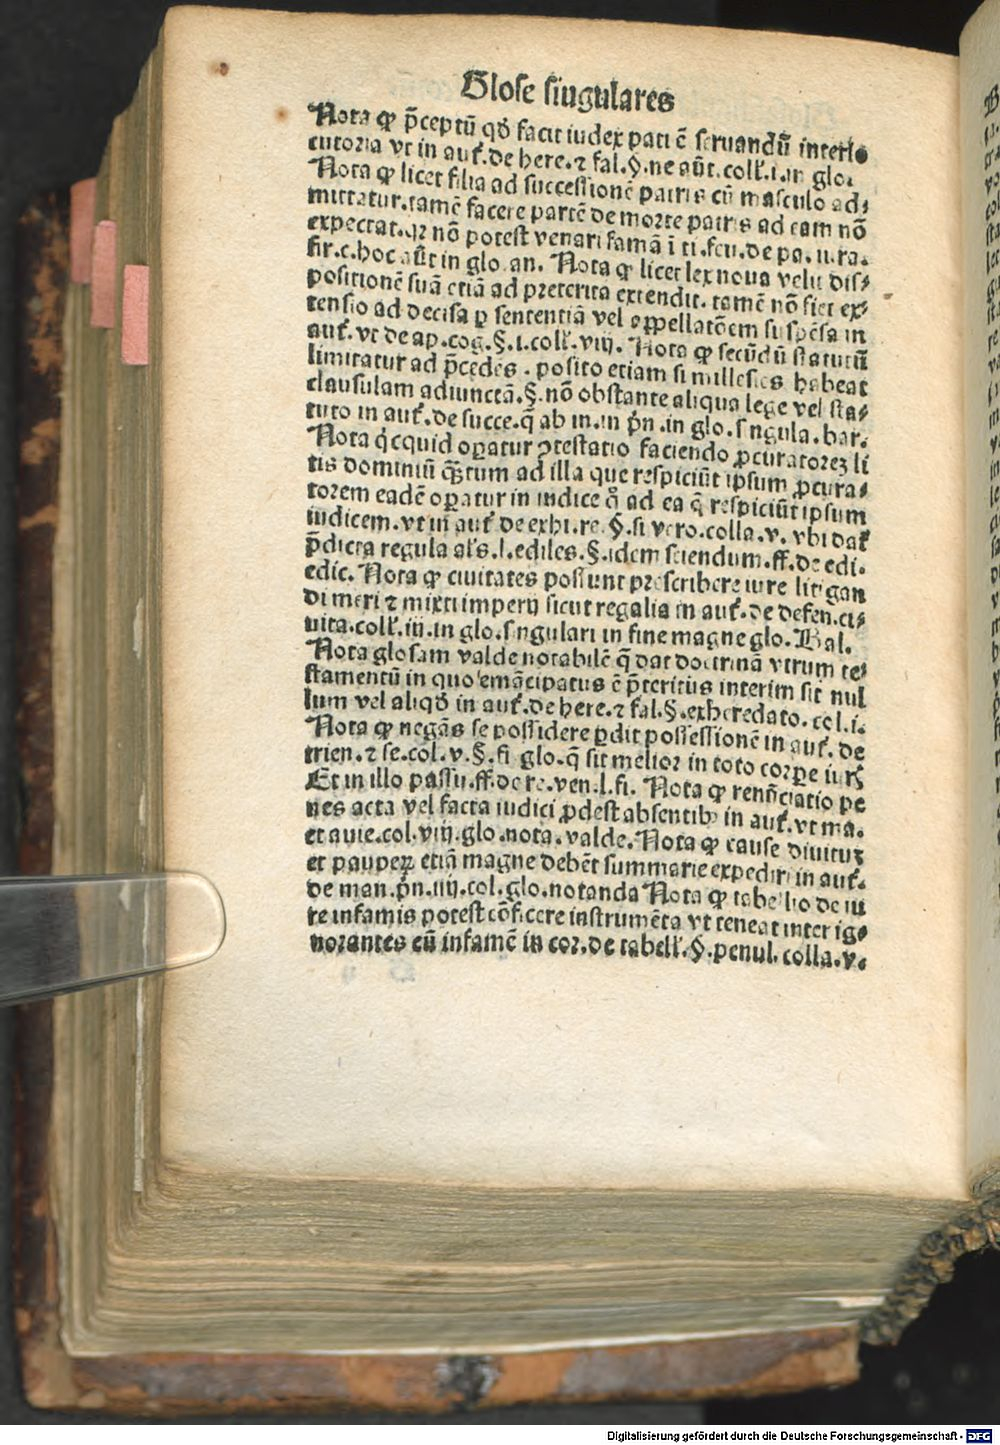 Glose singulares
Nota qꝙ p̄ceptū qd̓ facit iudex pati ē seruandū interlo
cutoria vt in aut̓.de here.⁊ fal.§.ne aūt.coll̓.i.in glo.
Nota ꝙ licet filia ad successionē patris cū masculo ad⸗
mittatur.tamē facere partē de morte patris ad eam nō
expectat.qꝛ nō potest venari famā ī ti.feu.de pa.iura.
fir.c.hoc aūt in glo.an. Nota ꝙ licet lex noua velit dis⸗
positionē suā etiā ad preterita extendit. tamē nō fiet ex⸗
tensio ad decisa ꝑ sententiā vel appellatōem suspēsa in
aut̓.vt de ap.cog.§.i.coll̓.viij. Nota ꝙ secūdū statutū
limitatur ad p̄cedēs . posito etiam si millesies habeat
clausulam adiunctā.§.nō obstante aliqua lege vel sta⸗
tuto in aut̓.de succe.q̄ ab in.in p̄n.in glo.singula.bar.
Nota qͥcquid oꝑatur ꝓtestatio faciendo ꝓcuratoreꝫ li
tis dominiū qͣꝫtum ad illa que respiciūt ipsum ꝓcura⸗
torem eadē oꝑatur in iudice qͦ ad ea q̄ respiciūt ipsum
iudicem.vt in aut̓ de exhi.re.§.si vero.colla.v. vbi dat̓
p̄dicta regula al̓s.l.ediles.§.idem sciendum.ff.de edi.
edic. Nota ꝙ ciuitates possunt prescribere iure litigan
di meri ⁊ mixti imperij sicut regalia in aut̓.de defen.ci⸗
uita.coll̓.iij.in glo.singulari in fine magne glo.Bal.
Nota glosam valde notabilē q̄ dat doctrinā vtrum te⸗
stamentū in quo emācipatus ē p̄teritus interim sit nul
lum vel aliqd̓ in aut̓.de here.⁊ fal.§.exheredato.col.i.
Nota ꝙ negās se possidere ꝑdit possessionē in aut̓. de
trien.⁊ se.col.v.§.fi glo.q̄ sit melior in toto corꝑe iurꝭ
Et in illo passu.ff.de re.ven.l.fi. Nota ꝙ renūciatio pe
nes acta vel facta iudici ꝓdest absentibꝰ in aut̓.vt ma.
et auie.col.viij.glo.nota.valde. Nota ꝙ cause diuituꝫ
et pauperꝫ etiā magne debēt summarie expediri in aut̓.
de man.p̄n.iiij.col.glo.notanda Nota ꝙ tabellio de iu
re infamis potest cōficere instrumēta vt teneat inter ig⸗
norantes eū infamē in cor.de tabell̓.§.penul.colla.v.
Digitalisierung gefördert durch die Deutsche Forschungsgemeinschaft - DFG